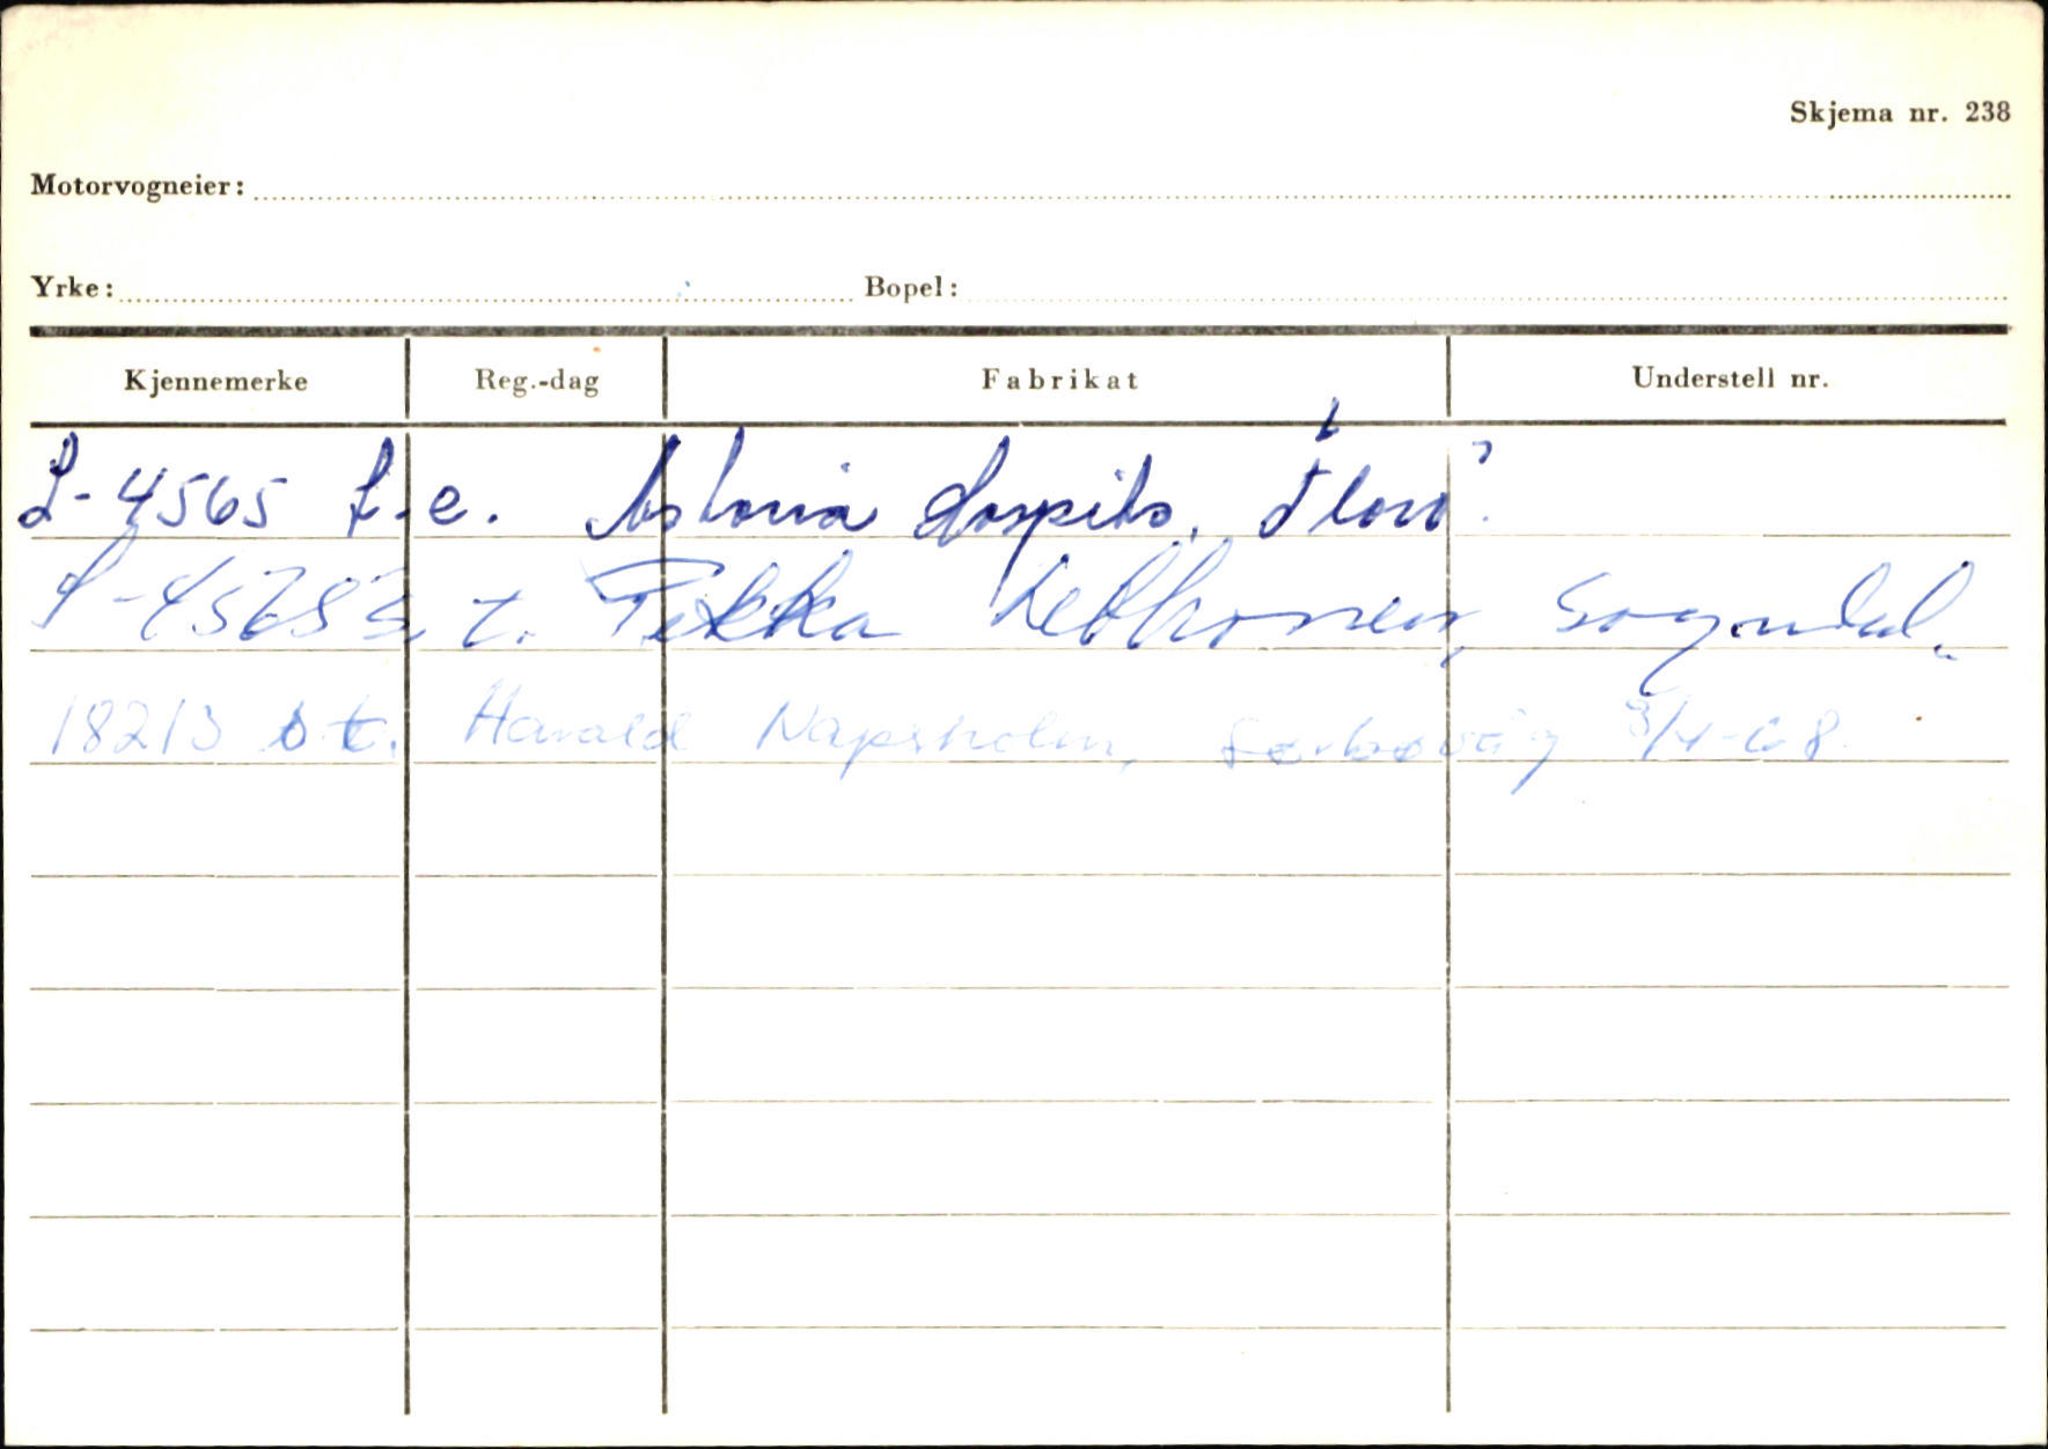 Skjema nr. 238
Motorvogneier:
Yrke: Bopel:
Kjennemerke Reg.-dag Fabrikat Understell nr.
L-4565 t.e. Astoria Hospits, Florø.
t. Pekka Sogndal.
18213 t. Harald Napsholm, 3/4-68.